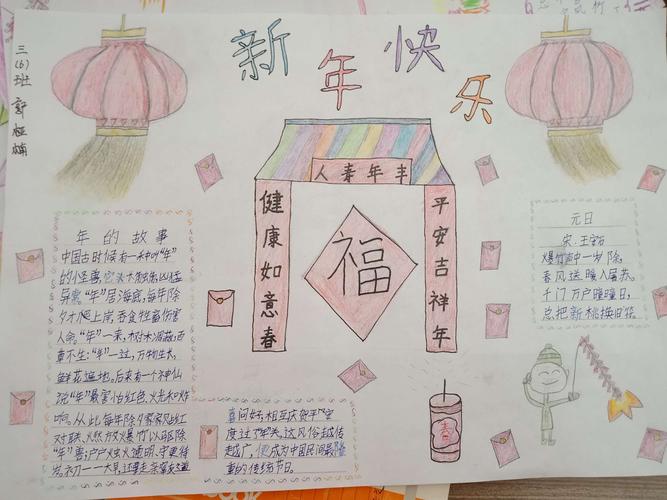 三(6)班
新年快乐
人春年丰
健康如意春
平安吉祥年
福
年的故事
中国古时候有一种叫"年"
的怪兽,它头长触角凶猛
异常"年"居海底,每年除
夕才爬上岸,吞食牲畜伤害
人命,"年"一来,树木凋蔽,百
草不生;"年"一过,万物生长,
鲜花遍地,后来有一个神仙
说"年"最害怕红色、火光和炸
响。从此每年除夕家家贴红
对联、燃放爆竹以驱除
"年"兽;户户烛火通明、守更待
岁。初一一大早,还要走亲窜友道
喜问好,相互庆贺平安
度过了年关,这风俗越传
越广,便成为中国民间最隆
重的传统节日。
元日
宋 王安石
爆竹声中一岁除,
春风送暖入屠苏。
千门万户曈曈日,
总把新桃换旧符。
春